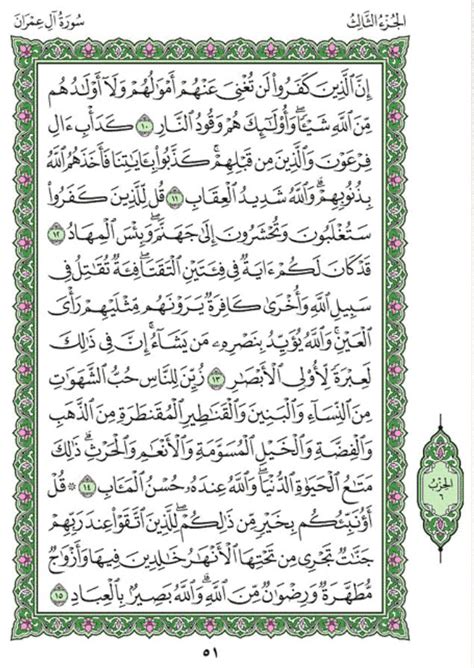 الجزء الثالث
سورة آل عمران
إِنَّ ٱلَّذِينَ كَفَرُوا۟ لَن تُغْنِىَ عَنْهُمْ أَمْوَٰلُهُمْ وَلَآ أَوْلَٰدُهُم
مِّنَ ٱللَّهِ شَيْـًٔا ۖ وَأُو۟لَٰٓئِكَ هُمْ وَقُودُ ٱلنَّارِ ١٠ كَدَأْبِ ءَالِ
فِرْعَوْنَ وَٱلَّذِينَ مِن قَبْلِهِمْ ۚ كَذَّبُوا۟ بِـَٔايَٰتِنَا فَأَخَذَهُمُ ٱللَّهُ
بِذُنُوبِهِمْ ۗ وَٱللَّهُ شَدِيدُ ٱلْعِقَابِ ١١ قُل لِّلَّذِينَ كَفَرُوا۟
سَتُغْلَبُونَ وَتُحْشَرُونَ إِلَىٰ جَهَنَّمَ ۚ وَبِئْسَ ٱلْمِهَادُ ١٢
قَدْ كَانَ لَكُمْ ءَايَةٌ فِى فِئَتَيْنِ ٱلْتَقَتَا ۖ فِئَةٌ تُقَٰتِلُ فِى
سَبِيلِ ٱللَّهِ وَأُخْرَىٰ كَافِرَةٌ يَرَوْنَهُم مِّثْلَيْهِمْ رَأْىَ
ٱلْعَيْنِ ۚ وَٱللَّهُ يُؤَيِّدُ بِنَصْرِهِۦ مَن يَشَآءُ ۗ إِنَّ فِى ذَٰلِكَ
لَعِبْرَةً لِّأُو۟لِى ٱلْأَبْصَٰرِ ١٣ زُيِّنَ لِلنَّاسِ حُبُّ ٱلشَّهَوَٰتِ
مِنَ ٱلنِّسَآءِ وَٱلْبَنِينَ وَٱلْقَنَٰطِيرِ ٱلْمُقَنطَرَةِ مِنَ ٱلذَّهَبِ
وَٱلْفِضَّةِ وَٱلْخَيْلِ ٱلْمُسَوَّمَةِ وَٱلْأَنْعَٰمِ وَٱلْحَرْثِ ۗ ذَٰلِكَ
مَتَٰعُ ٱلْحَيَوٰةِ ٱلدُّنْيَا ۖ وَٱللَّهُ عِندَهُۥ حُسْنُ ٱلْمَـَٔابِ ١٤ ۞ قُلْ
أَؤُنَبِّئُكُم بِخَيْرٍ مِّن ذَٰلِكُمْ ۚ لِلَّذِينَ ٱتَّقَوْا۟ عِندَ رَبِّهِمْ
جَنَّٰتٌ تَجْرِى مِن تَحْتِهَا ٱلْأَنْهَٰرُ خَٰلِدِينَ فِيهَا وَأَزْوَٰجٌ
مُّطَهَّرَةٌ وَرِضْوَٰنٌ مِّنَ ٱللَّهِ ۗ وَٱللَّهُ بَصِيرٌۢ بِٱلْعِبَادِ ١٥
الحزب
٦
٥١